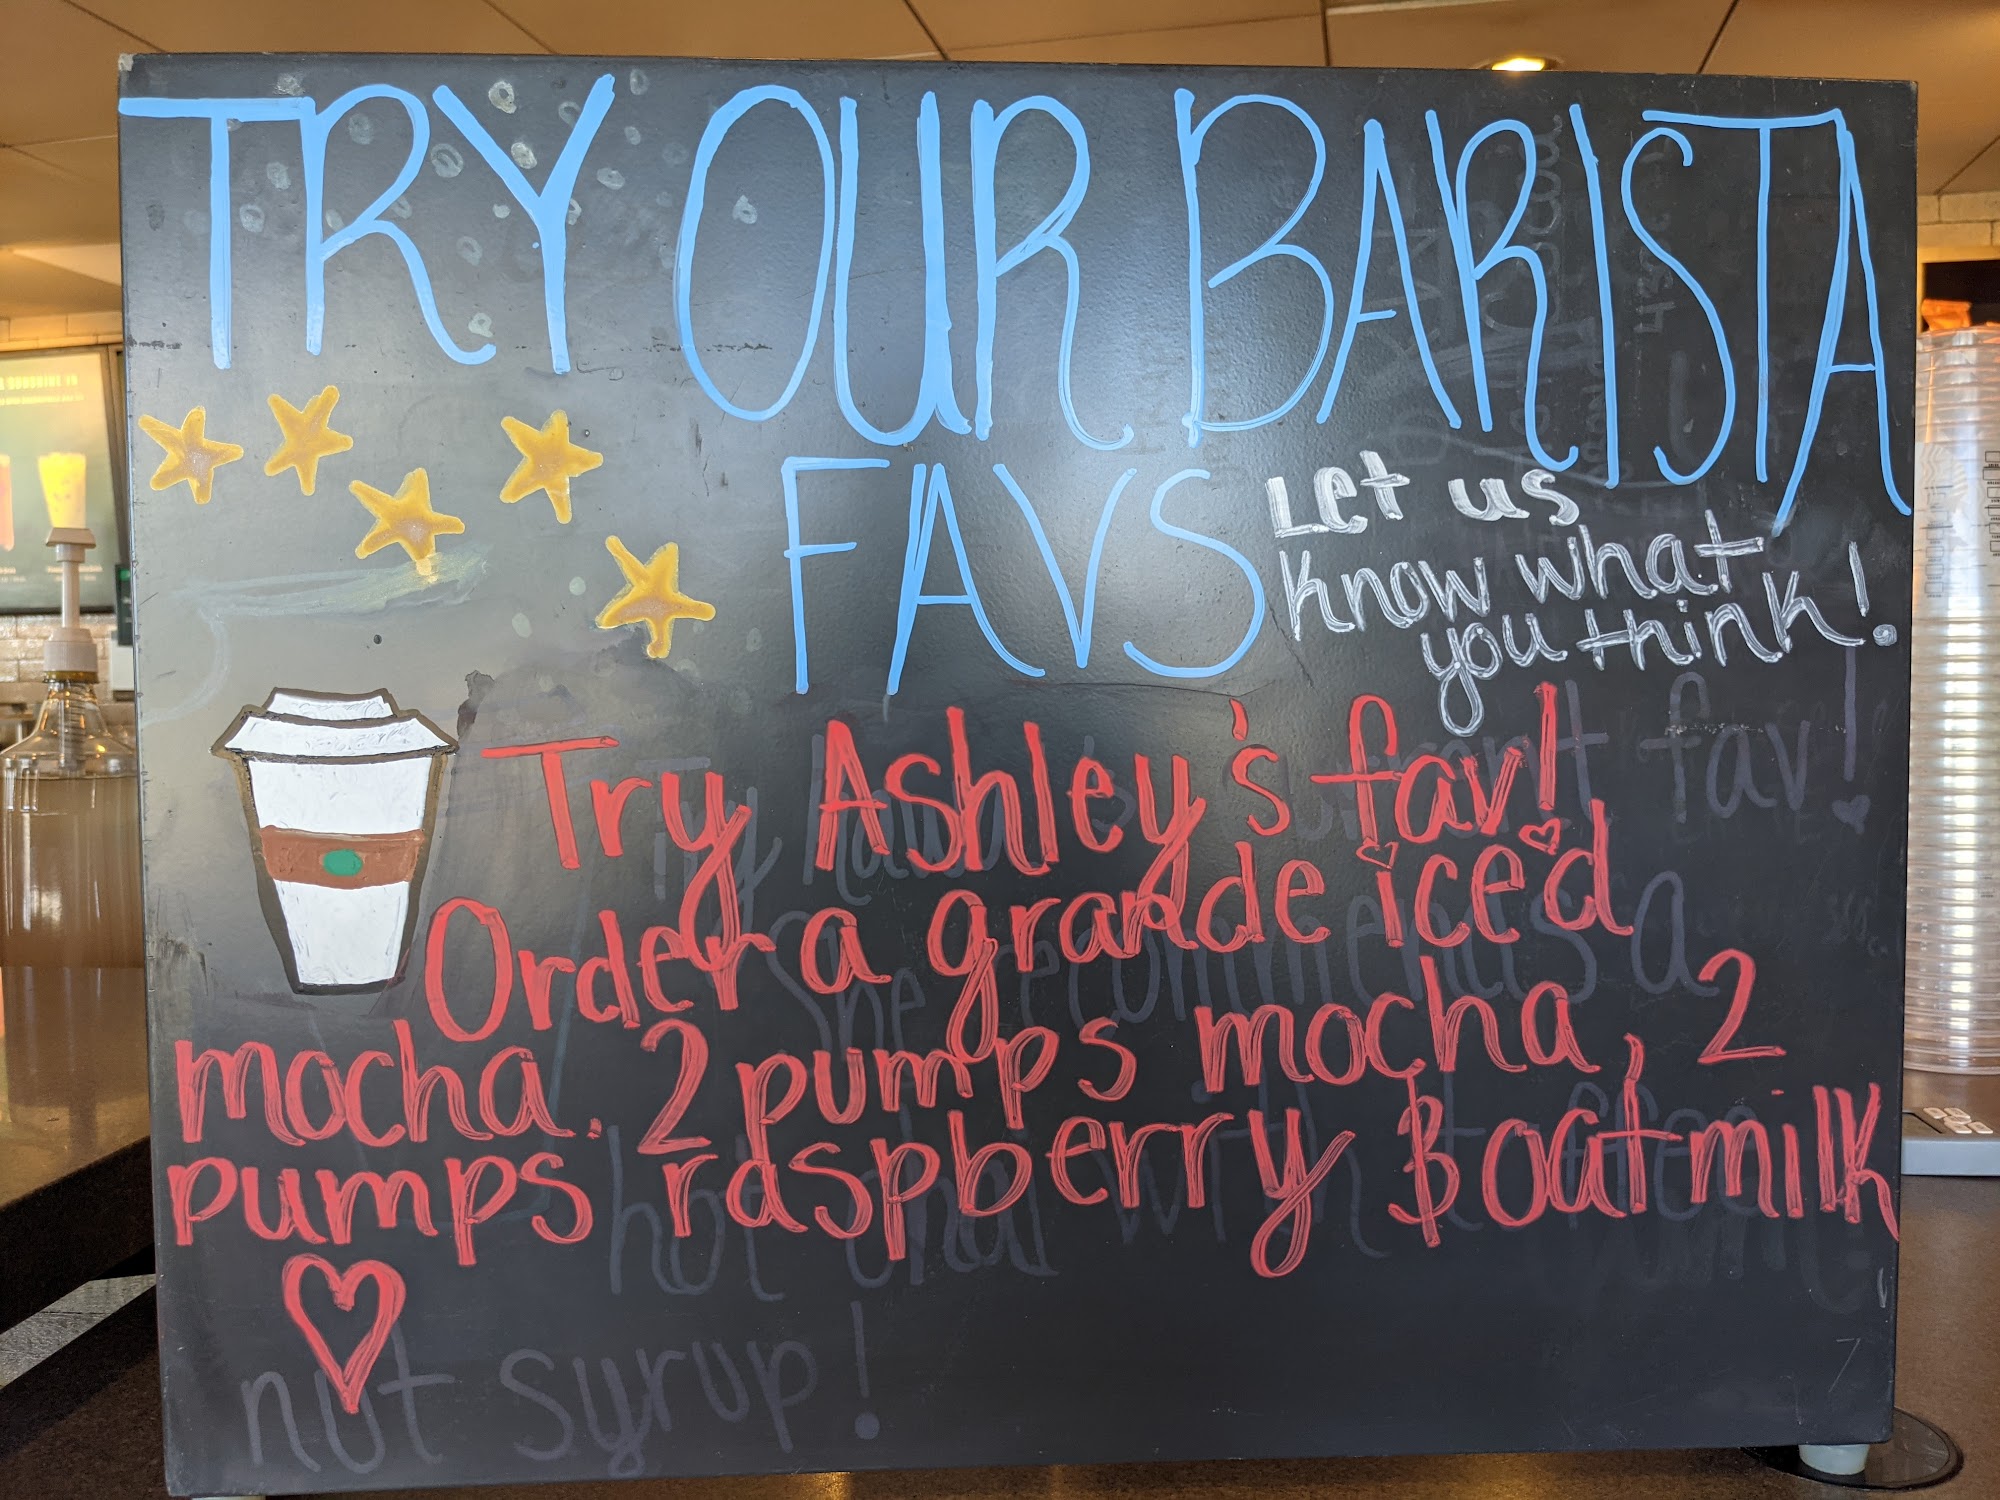 TRY OUR BARISTA
FAVS
Let us
know what
you think!
Try Ashley's fav!
Order a grande iced
mocha. 2 pumps mocha, 2
pumps raspberry & oatmilk
She recommends a
hot chai with
nut syrup!